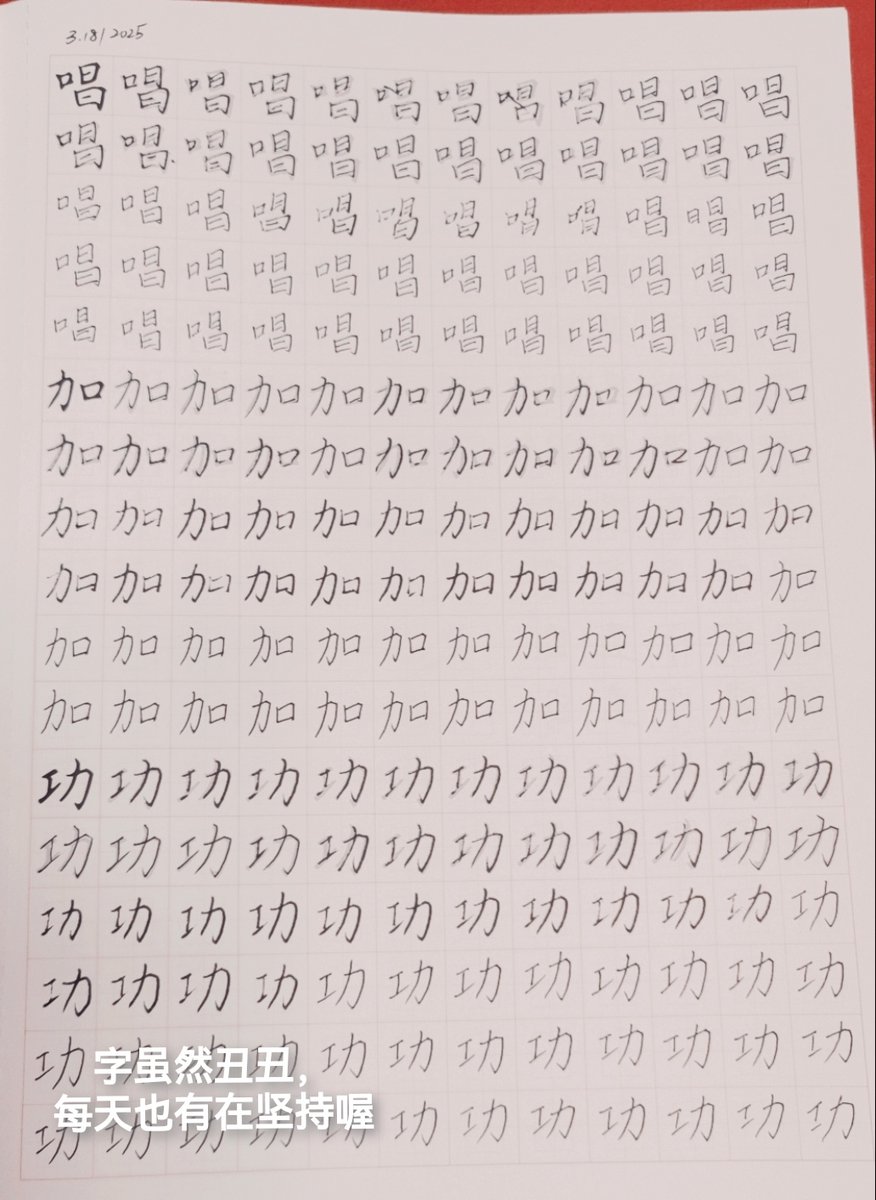 3.18/2025
唱唱唱唱唱唱唱唱唱唱唱唱
唱唱唱唱唱唱唱唱唱唱唱唱
唱唱唱唱唱唱唱唱唱唱唱唱
唱唱唱唱唱唱唱唱唱唱唱唱
唱唱唱唱唱唱唱唱唱唱唱唱
加加加加加加加加加加加加
加加加加加加加加加加加加
加加加加加加加加加加加加
加加加加加加加加加加加加
加加加加加加加加加加加加
加加加加加加加加加加加加
功功功功功功功功功功功功
功功功功功功功功功功功功
功功功功功功功功功功功功
功功功功功功功功功功功功
功功功功功功功功功功功功
功功功功功功功功功功功功
字虽然丑丑，
每天也有在坚持喔